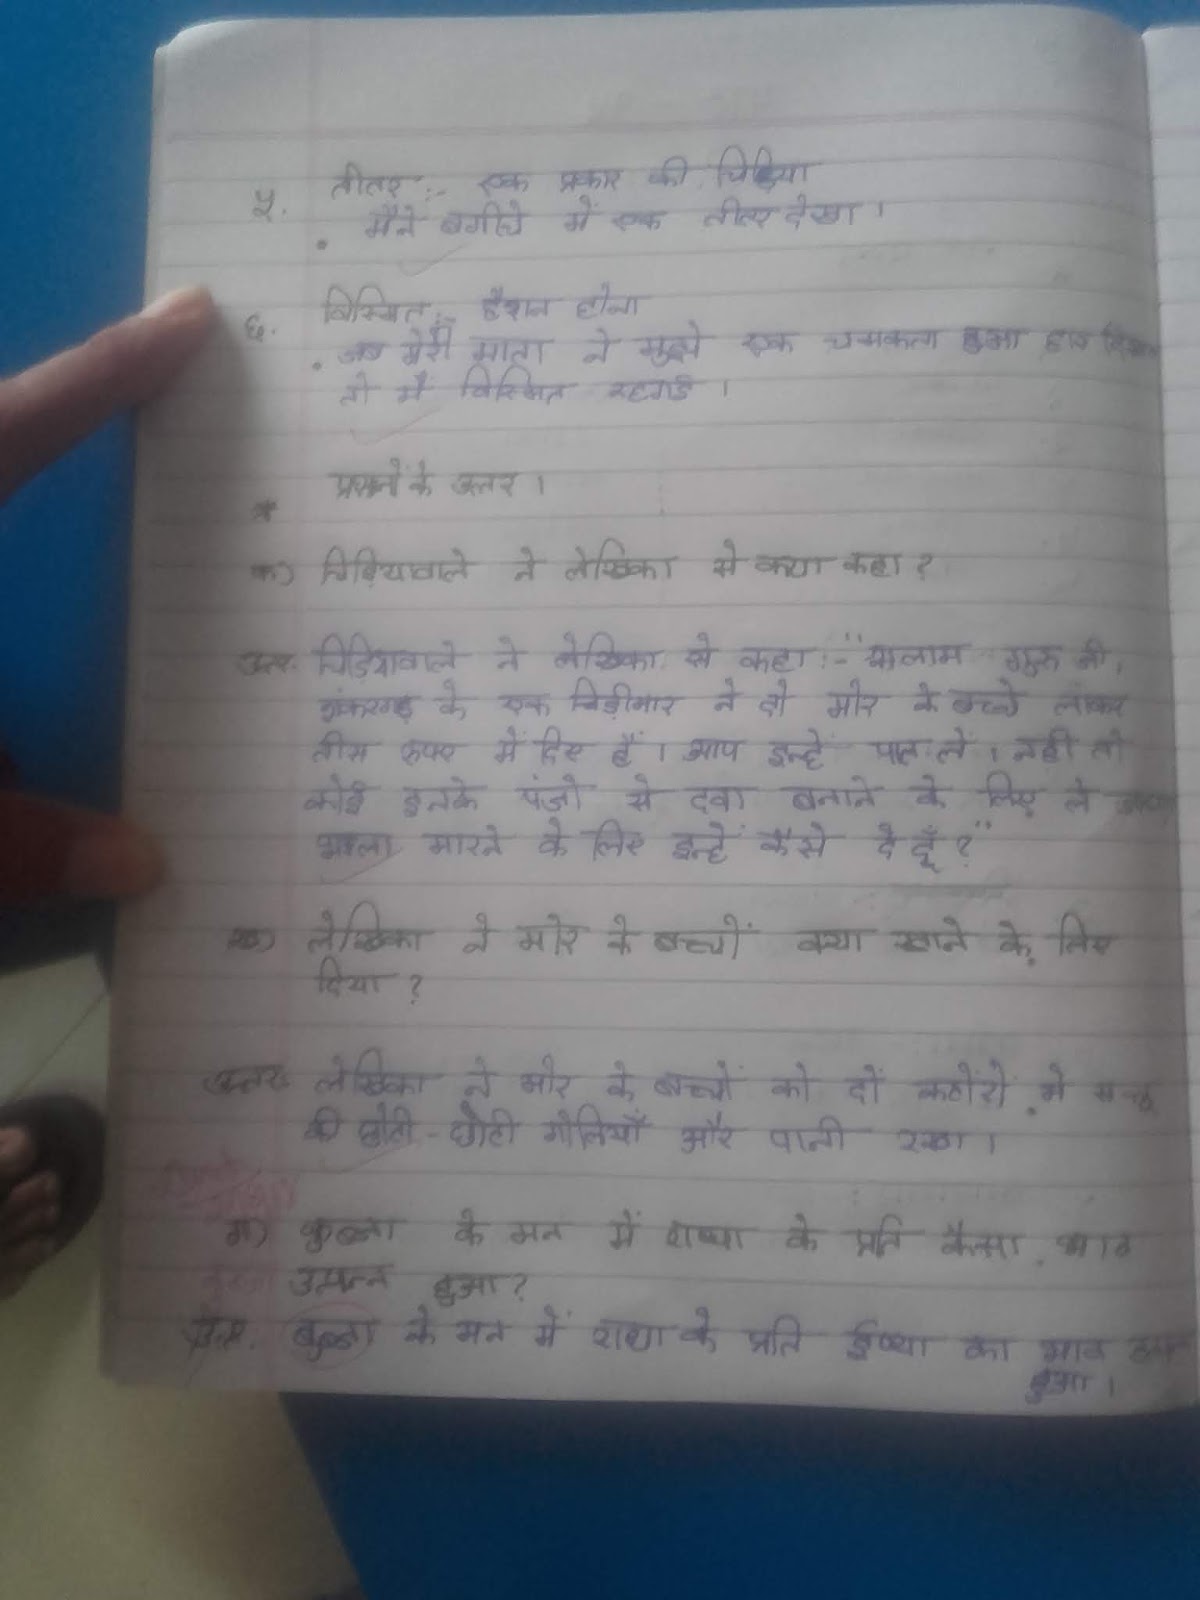 ५. तीतर :- एक प्रकार की चिड़िया
. मैने बगीचे में एक तीतर देखा।
६. विस्मित :- हैरान होना
. जब मेरी माता ने मुझे एक चमकता हुआ हार
तो मैं विस्मित रहगई।
* प्रश्नों के उत्तर।
क) चिड़ियावाले ने लेखिका से क्या कहा?
उत्तर. चिड़ियावाले ने लेखिका से कहा :- "सलाम गुरु जी,
शंकरगढ़ के एक चिड़ीमार ने दो मोर के बच्चे लाकर
तीस रुपए में दिए हैं। आप इन्हें पाल लें। नहीं तो
कोई इनके पंजो से दवा बनाने के लिए ले
भला मारने के लिए इन्हें कैसे दे दूँ?"
ख) लेखिका ने मोर के बच्चों क्या खाने के लिए
दिया?
उत्तर. लेखिका ने मोर के बच्चों को दों कटोंरों में
की छोटी-छोटी गोलियाँ और पानी रखा।
ग) कुब्जा के मन में राधा के प्रति कैसा भाव
उत्पन्न हुआ?
उत्तर. कुब्जा के मन में राधा के प्रति ईष्या का भाव
हुआ।